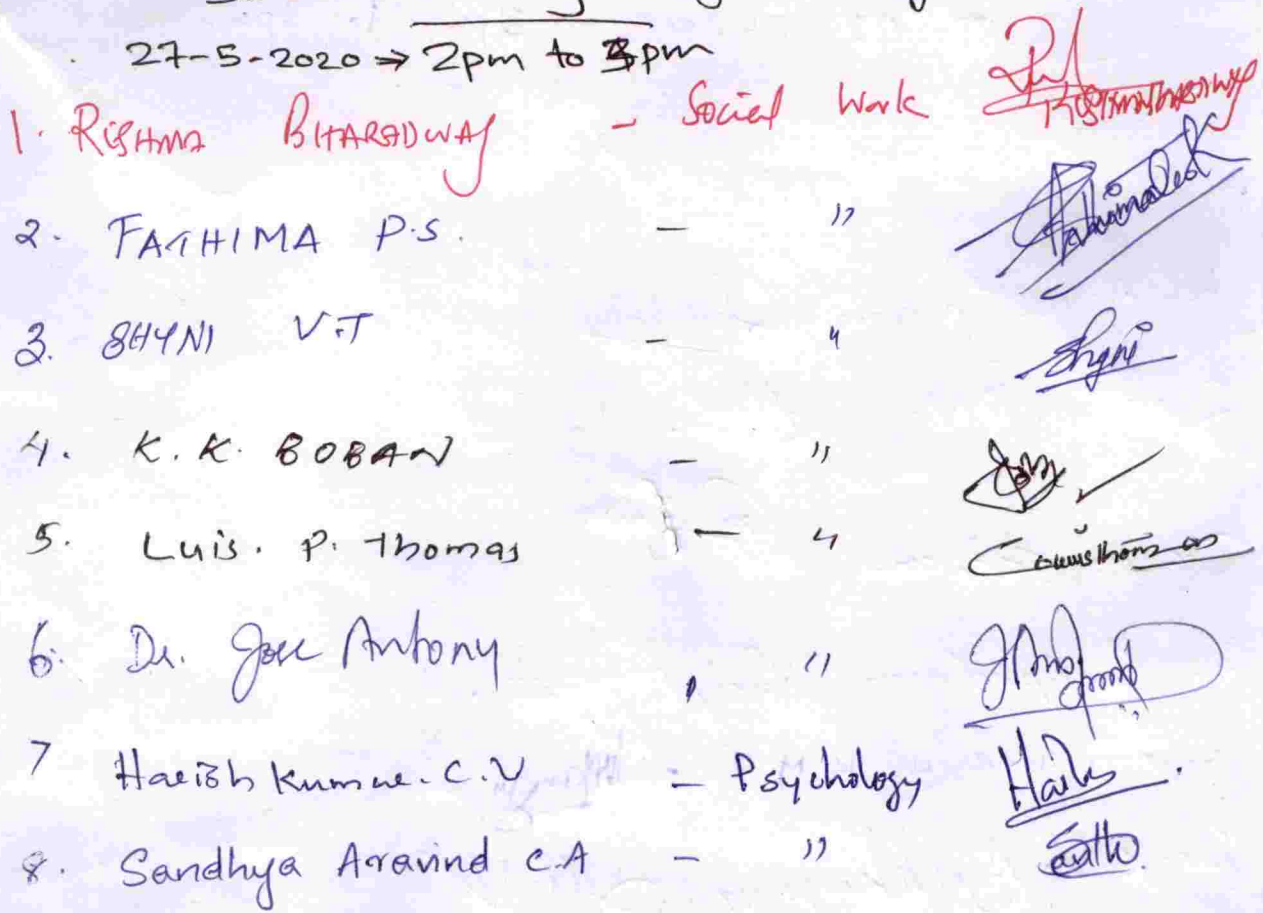 27-5-2020 ⇒ 2pm to 3pm
1. RESHMA BHARADWAJ - Social Work
2. FATHIMA P.S. - "
3. SHYNI V.T - " Shyni
4. K. K. BOBAN - "
5. Luis. P. Thomas - "
6. Dr. Jose Antony , "
7 Harish Kumar. C.V - Psychology
8. Sandhya Aravind C.A - "